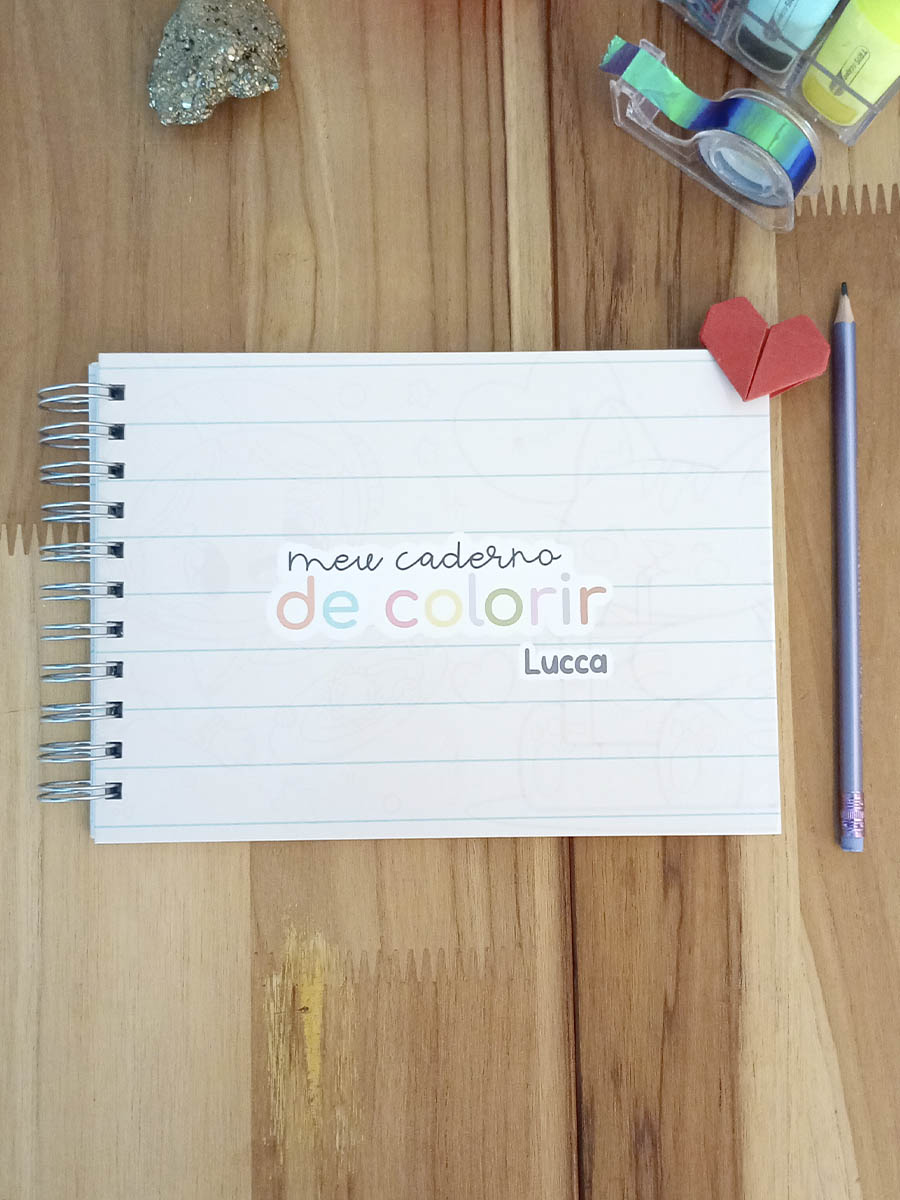 meu caderno
de colorir
Lucca